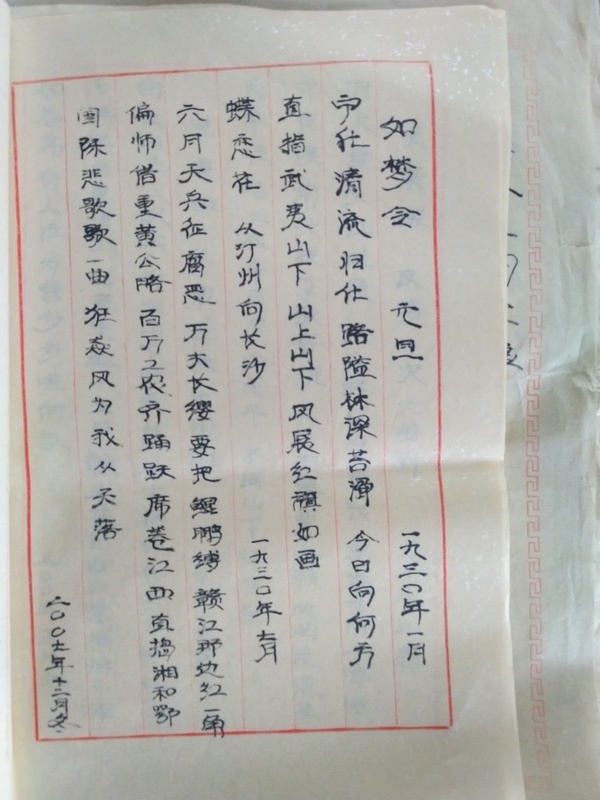 如梦令 元旦 一九三〇年一月
宁化 清流 归化 路隘林深苔滑 今日向何方
直指武夷山下 山上山下 风展红旗如画
蝶恋花 从汀州向长沙 一九三〇年七月
六月天兵征腐恶 万丈长缨要把鲲鹏缚 赣江那边红一角
偏师借重黄公略 百万工农齐踊跃 席卷江西直捣湘和鄂
国际悲歌歌一曲 狂飙为我从天落
二〇〇七年十二月冬